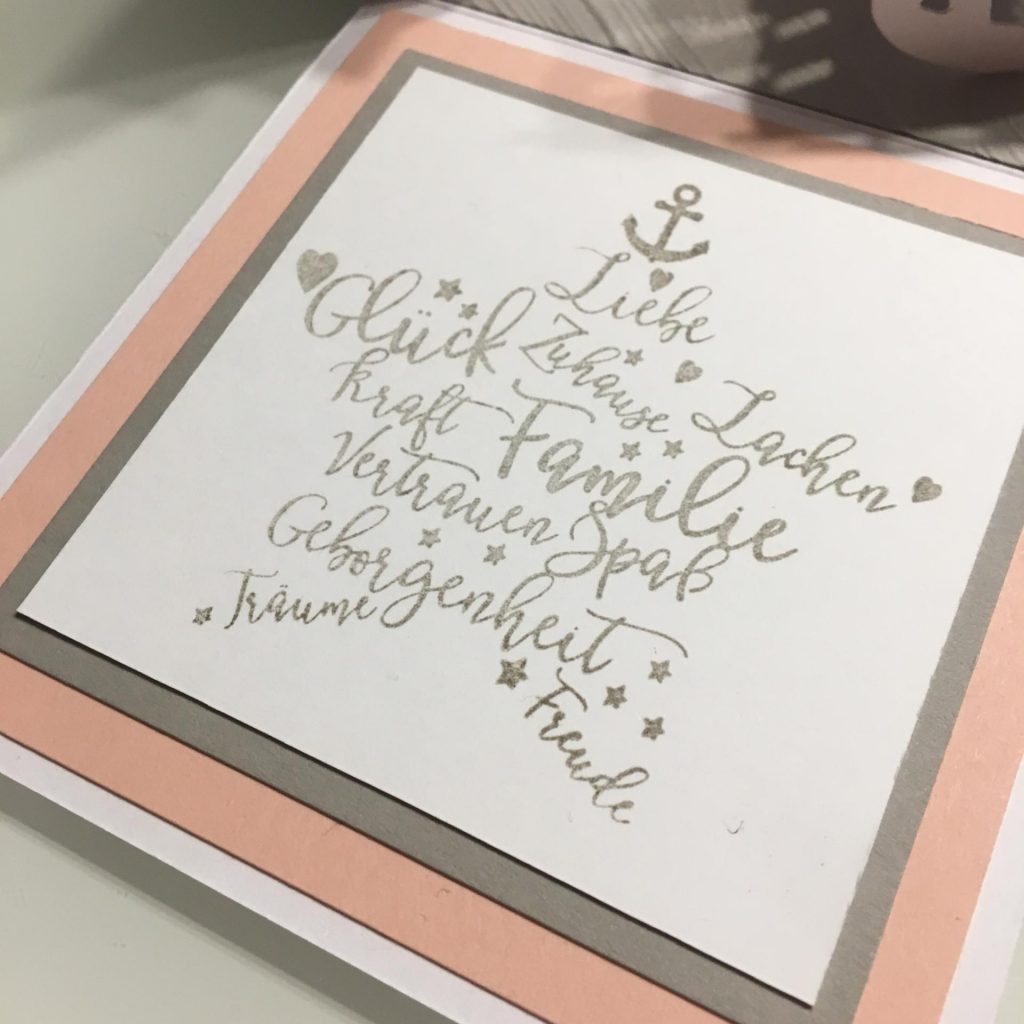 Liebe
Glück Zuhause Lachen
Kraft Familie
Vertrauen Spaß
Geborgenheit
Träume
Freude